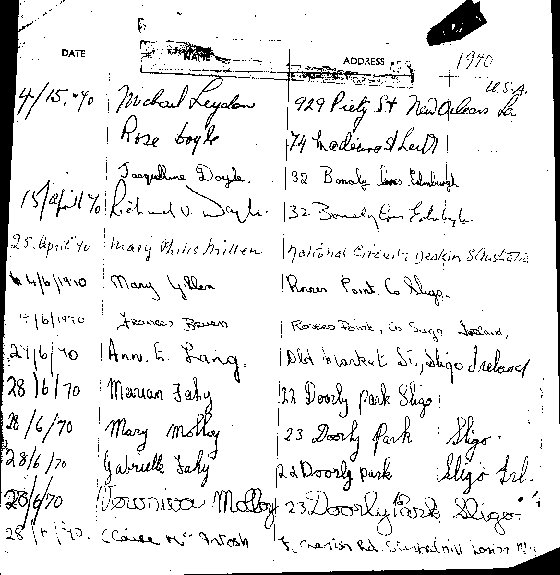 DATE NAME ADDRESS 1970
U.S.A.
4/15, 70 Michael Leydon 929 Piety St New Orleans La
Rose Boyle 74
Jacqueline Doyle. 32 Bonaly Edinburgh
15/April 70 Richard V. Doyle. 32 Bonaly Edinburgh
25. April 70 Mary National Circuit Deakin S Australia
4/6/1970 Mary Rosses Point. Co Sligo.
4/6/1970 Frances Rosses Point, Co Sligo Ireland,
27/6/70 Ann. E. Lang. Old Market St, Sligo Ireland
28/6/70 Marian Fahy 22 Doorly park Sligo
28/6/70 Mary Molloy 23 Doorly Park Sligo.
28/6/70 Gabrielle Fahy 22 Doorly park Sligo Irl.
28/6/70 Veronica Molloy 23 Doorly Park Sligo.
28/ /70. Claire Mc Intosh Rd.